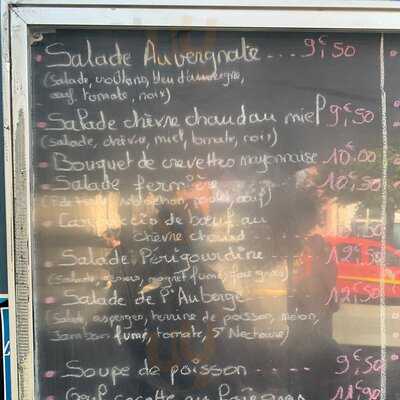 Salade Auvergnate .... 9€,50
(Salade, croûtons, bleu d'auvergne,
œuf, tomate, noix)
Salade chèvre chaud au miel 9€,50
(Salade, chèvre, miel, tomate, noix)
Bouquet de crevettes mayonnaise 10€00
Salade fermière 10€,50
poulet, œuf)
Carpaccio de bœuf au
chèvre chaud
Salade Périgourdine 12€,50
(Salade, gésiers, magret fumé, foie gras)
Salade de l'Auberge 12€,50
(Salade, asperges, terrine de poisson, melon,
Jambon fumé, tomate, St Nectaire)
Soupe de poisson ..... 9€,50
Oeuf cocotte au foie gras 11€,90